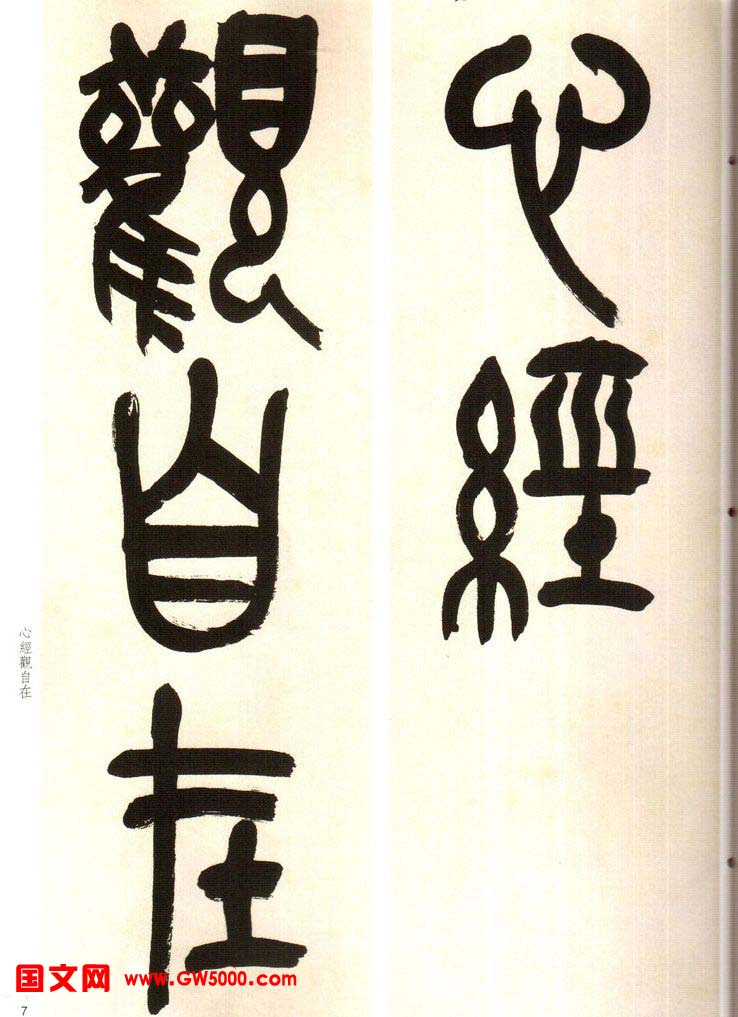 心經
觀自在
心經觀自在
国文网 www.GW5000.com
7